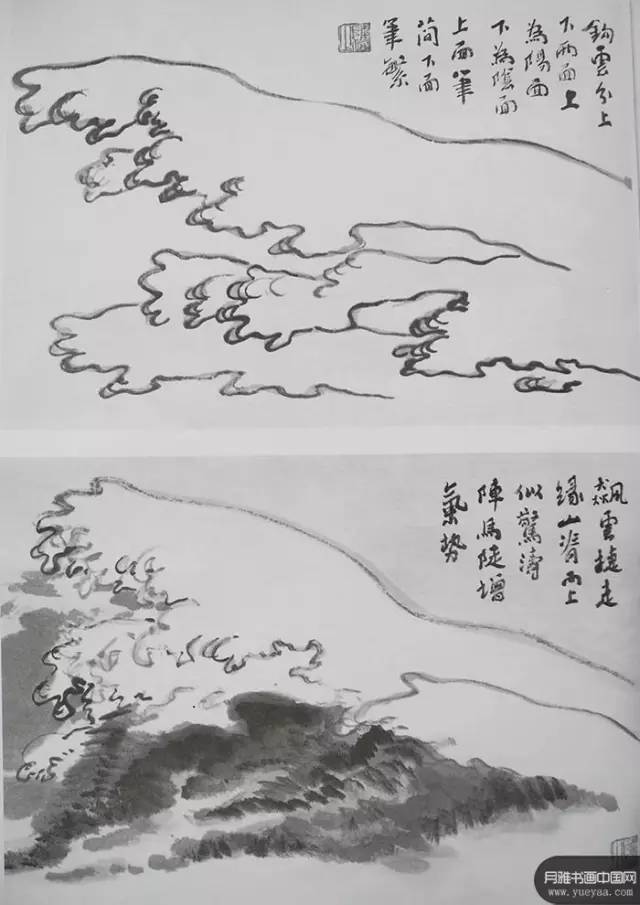 鈎雲分上
下兩面上
為陽面
下為陰面
上面筆
简下面
筆繁
飆雲捷走
緣山脊而上
似驚濤
陣馬陡增
氣势
月雅书画中国网
www.yueyaa.com